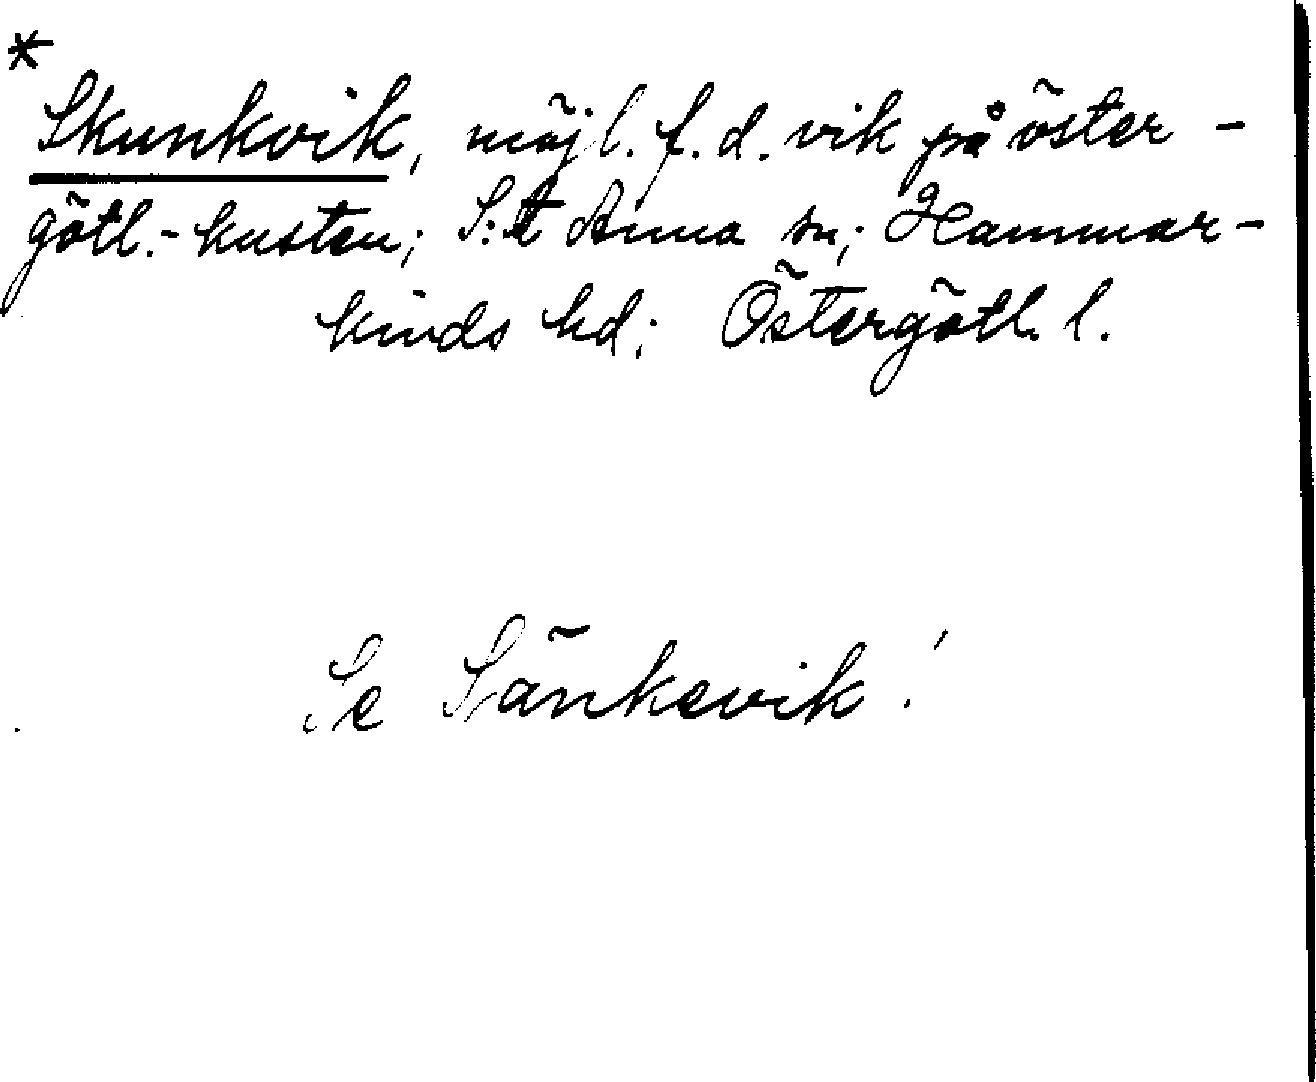 *
Skunkvik, möjl. f. d. vik på öster-
götl.-kusten; S:t Anna sn; Hammar-
kinds hd; Östergötl. l.
Se Sänkevik!